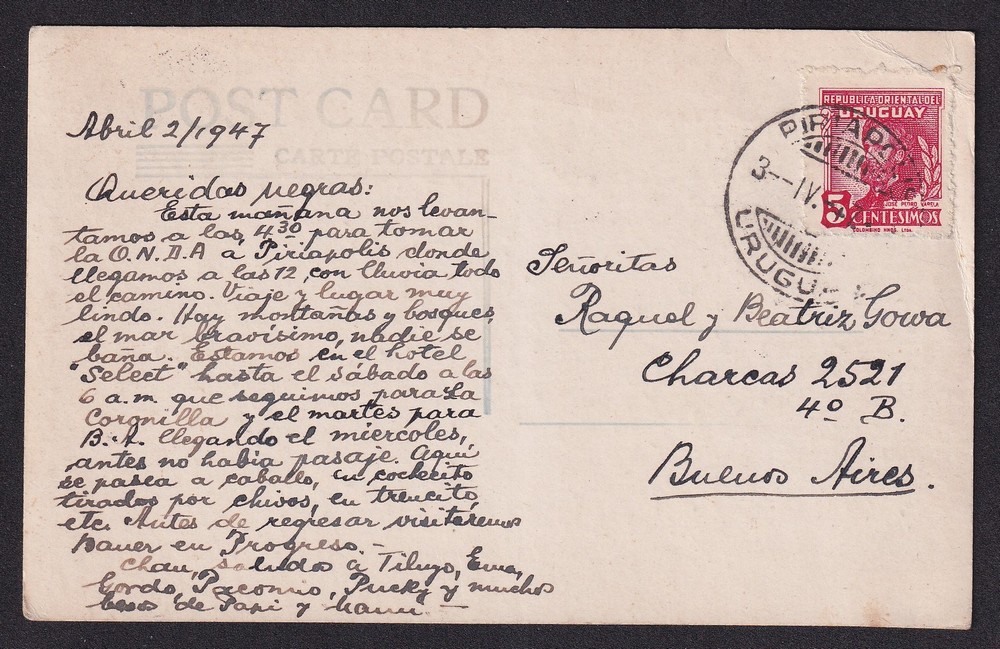 POST CARD
CARTE POSTALE
Abril 2/1947
Queridas negras:
Esta mañana nos levan-
tamos a las 4³⁰ para tomar
la O.N.D.A a Piriapolis donde
llegamos a las 12, con lluvia todo
el camino. Viaje y lugar muy
lindo. Hay montañas y bosques,
el mar bravísimo, nadie se
baña. Estamos en el hotel
"Select" hasta el sábado a las
6 a.m. que seguimos para La
Coronilla y el martes para
B.A. llegando el miércoles,
antes no había pasaje. Aquí
se pasea a caballo, en cochecito
tirados por chivos, en trencito,
etc. Antes de regresar visitaremos
Bauer en Progreso.-
Chau, saludos a Tiluyo, Ema,
Gordo, Pacomio, Pucky y muchos
besos de Papi y Mami -
REPUBLICA ORIENTAL DEL
URUGUAY
JOSE PEDRO VARELA
5 CENTESIMOS
COLOMBINO HNOS. LTDA.
3-IV.
URUGUAY
Señoritas
Raquel y Beatriz Gowa
Charcas 2521
4º B.
Buenos Aires.